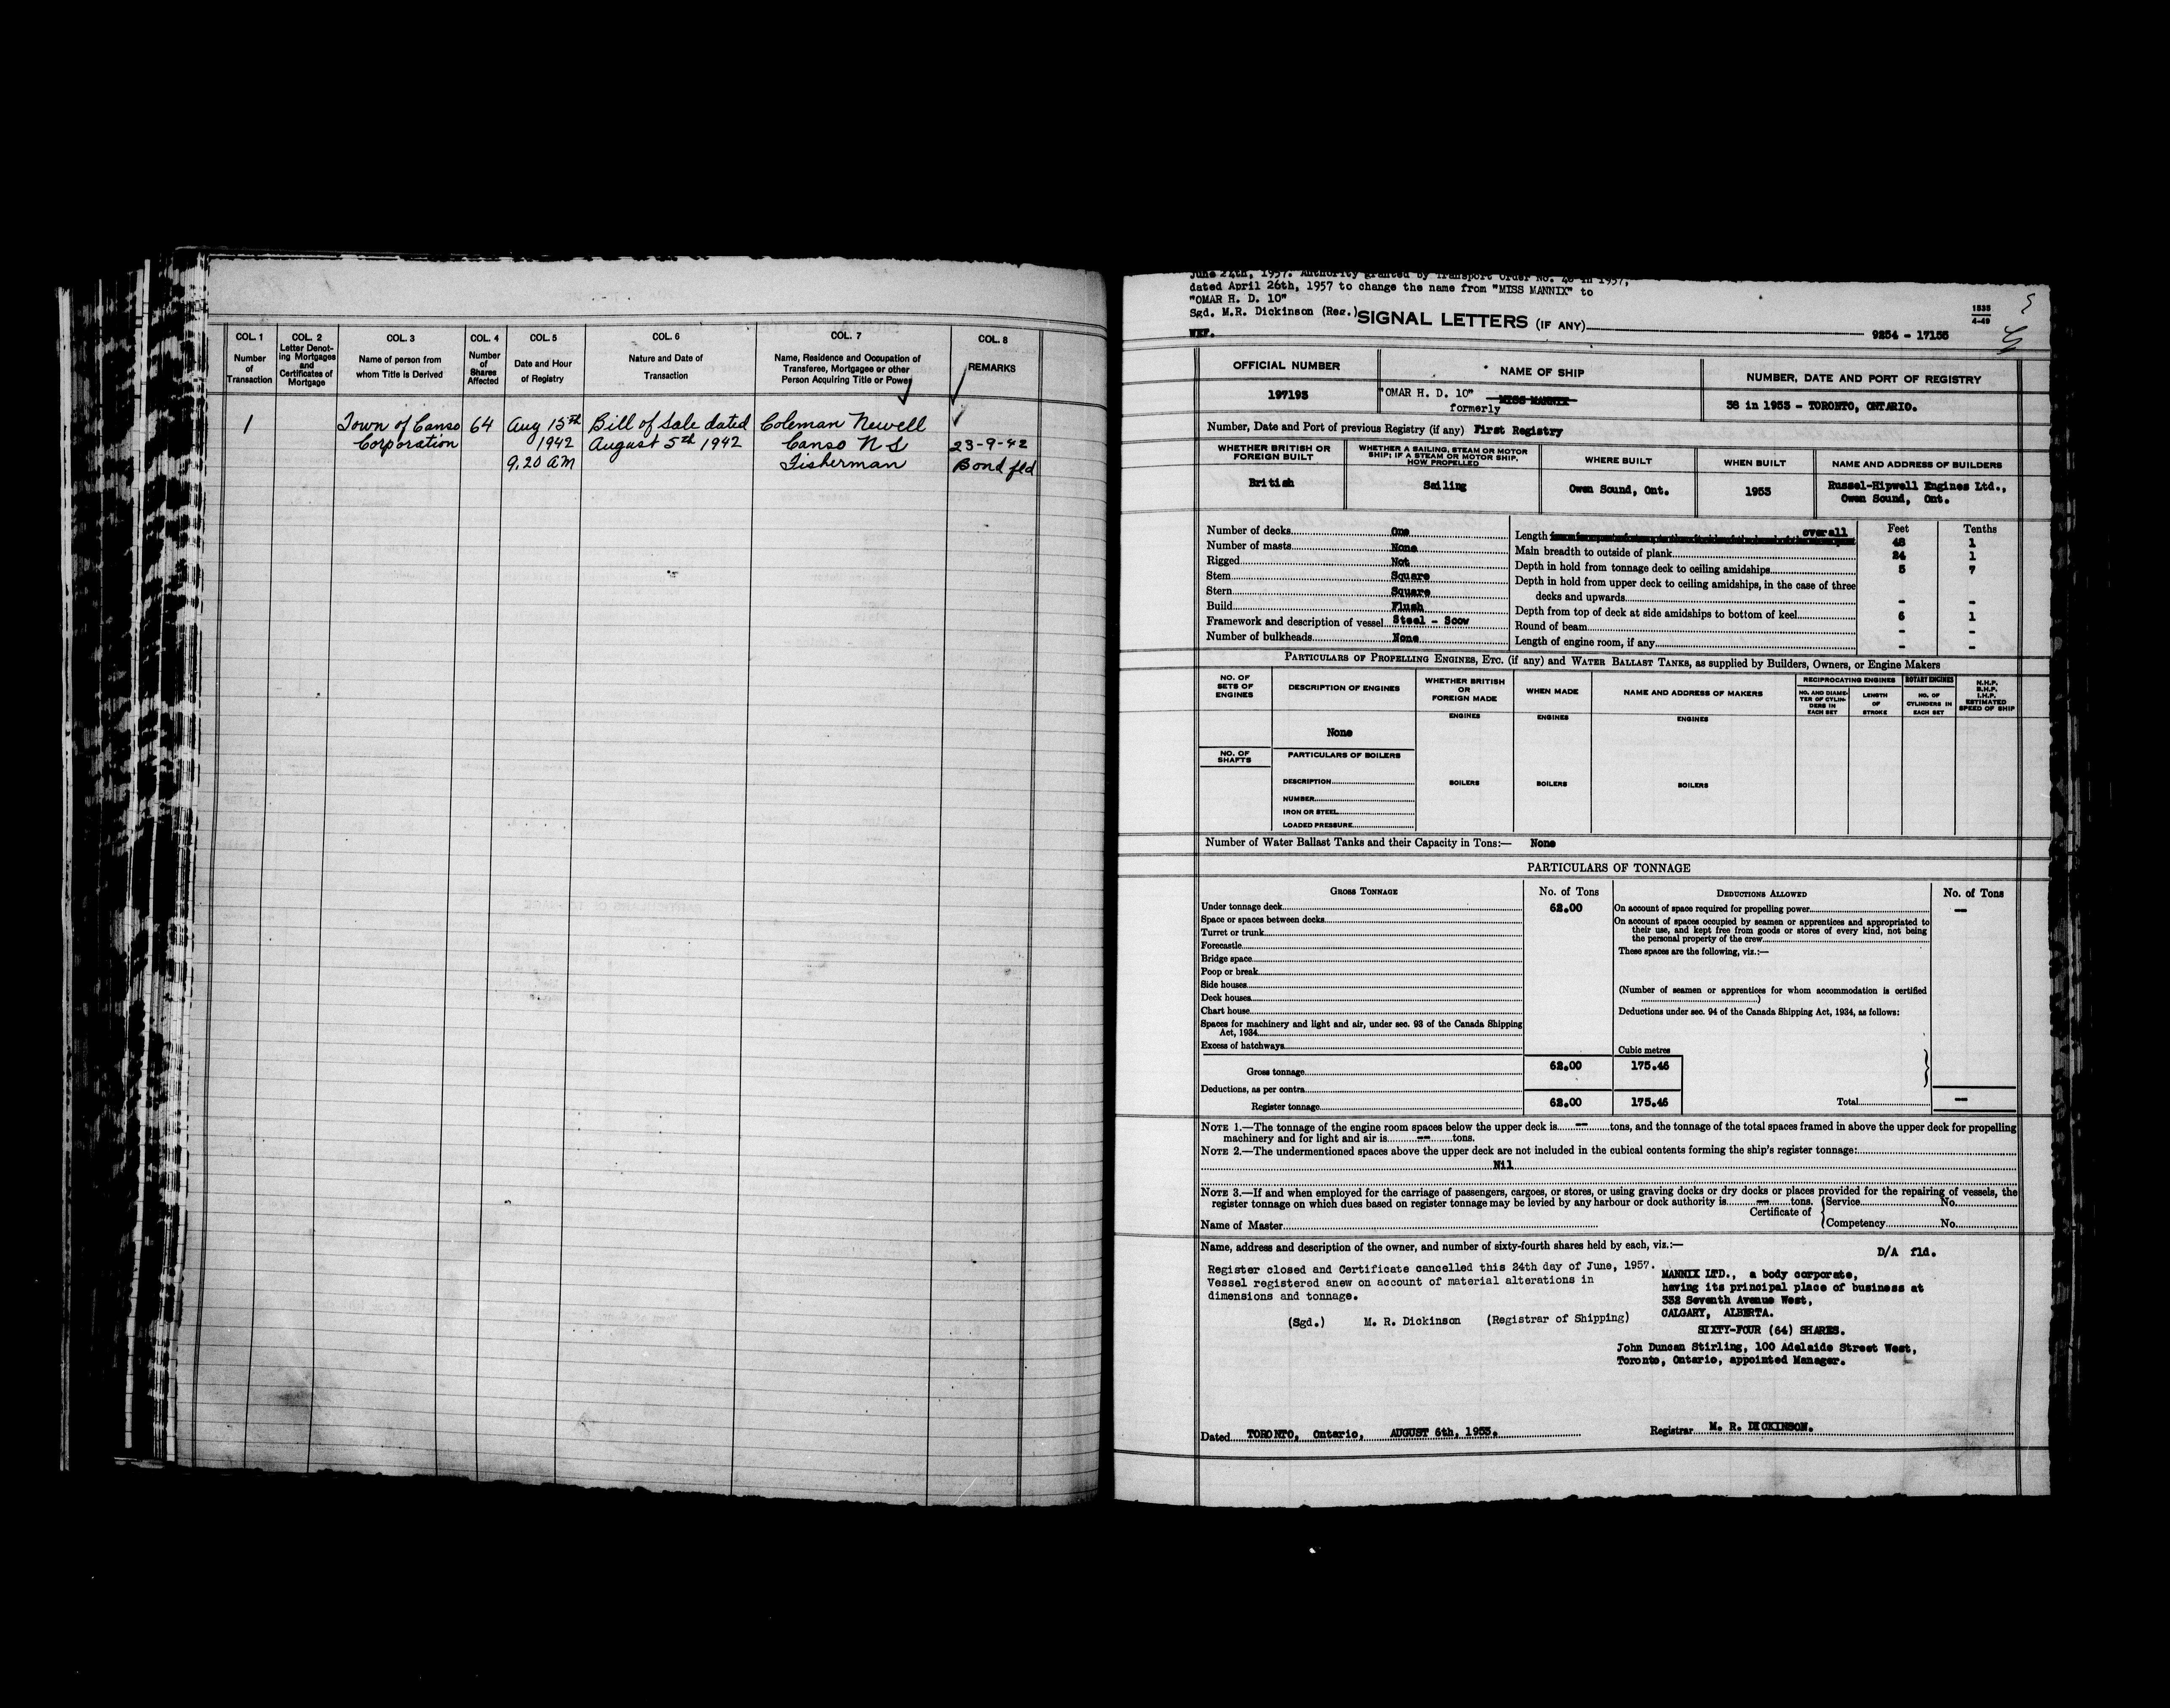 COL. 1 COL. 2 COL. 3 COL. 4 COL. 5 COL. 6 COL. 7 COL. 8
Number of Transaction
Letter Denoting Mortgages and Certificates of Mortgage
Name of person from whom Title is Derived
Number of Shares Affected
Date and Hour of Registry
Nature and Date of Transaction
Name, Residence and Occupation of Transferee, Mortgagee or other Person Acquiring Title or Power
REMARKS
1 Town of Canso 64 Aug 15th Bill of Sale dated Coleman Newell
Corporation 1942 August 5th 1942 Canso N S 23-9-42
9.20 AM Fisherman Bond fld
June 24th, 1957. Authority granted by Transport Order No. 48 in 1957,
dated April 26th, 1957 to change the name from "MISS MANNIX" to
"OMAR H. D. 10"
Sgd. M.R. Dickinson (Reg.)
SIGNAL LETTERS (IF ANY)
1535
4-49
9254 - 17155
OFFICIAL NUMBER NAME OF SHIP NUMBER, DATE AND PORT OF REGISTRY
197195 "OMAR H. D. 10" MISS MANNIX 38 in 1953 - TORONTO, ONTARIO.
formerly
Number, Date and Port of previous Registry (if any) First Registry
WHETHER BRITISH OR FOREIGN BUILT
WHETHER A SAILING, STEAM OR MOTOR SHIP; IF A STEAM OR MOTOR SHIP, HOW PROPELLED
WHERE BUILT WHEN BUILT NAME AND ADDRESS OF BUILDERS
British Sailing Owen Sound, Ont. 1953 Russel-Hipwell Engines Ltd.,
Owen Sound, Ont.
Number of decks One
Number of masts None
Rigged Not
Stem Square
Stern Square
Build Flush
Framework and description of vessel Steel - Scow
Number of bulkheads None
Feet Tenths
Length overall 48 1
Main breadth to outside of plank 24 1
Depth in hold from tonnage deck to ceiling amidships 5 7
Depth in hold from upper deck to ceiling amidships, in the case of three
decks and upwards - -
Depth from top of deck at side amidships to bottom of keel 6 1
Round of beam - -
Length of engine room, if any - -
PARTICULARS OF PROPELLING ENGINES, ETC. (if any) and WATER BALLAST TANKS, as supplied by Builders, Owners, or Engine Makers
NO. OF SETS OF ENGINES
DESCRIPTION OF ENGINES
WHETHER BRITISH OR FOREIGN MADE
WHEN MADE
NAME AND ADDRESS OF MAKERS
RECIPROCATING ENGINES
NO. AND DIAMETER OF CYLINDERS IN EACH SET
LENGTH OF STROKE
ROTARY ENGINES
NO. OF CYLINDERS IN EACH SET
N.H.P.
B.H.P.
I.H.P.
ESTIMATED SPEED OF SHIP
ENGINES ENGINES ENGINES
None
NO. OF SHAFTS
PARTICULARS OF BOILERS
DESCRIPTION BOILERS BOILERS BOILERS
NUMBER
IRON OR STEEL
LOADED PRESSURE
Number of Water Ballast Tanks and their Capacity in Tons:— None
PARTICULARS OF TONNAGE
GROSS TONNAGE No. of Tons DEDUCTIONS ALLOWED No. of Tons
Under tonnage deck 62.00
Space or spaces between decks
Turret or trunk
Forecastle
Bridge space
Poop or break
Side houses
Deck houses
Chart house
Spaces for machinery and light and air, under sec. 93 of the Canada Shipping
Act, 1934
Excess of hatchways
Cubic metres
Gross tonnage 62.00 175.46
Deductions, as per contra
Register tonnage 62.00 175.46
On account of space required for propelling power —
On account of spaces occupied by seamen or apprentices and appropriated to
their use, and kept free from goods or stores of every kind, not being
the personal property of the crew
These spaces are the following, viz.:—
(Number of seamen or apprentices for whom accommodation is certified
)
Deductions under sec. 94 of the Canada Shipping Act, 1934, as follows:
Total —
NOTE 1.—The tonnage of the engine room spaces below the upper deck is -- tons, and the tonnage of the total spaces framed in above the upper deck for propelling
machinery and for light and air is -- tons.
NOTE 2.—The undermentioned spaces above the upper deck are not included in the cubical contents forming the ship's register tonnage:
Nil
NOTE 3.—If and when employed for the carriage of passengers, cargoes, or stores, or using graving docks or dry docks or places provided for the repairing of vessels, the
register tonnage on which dues based on register tonnage may be levied by any harbour or dock authority is -- tons.
Certificate of
Service No.
Competency No.
Name of Master
Name, address and description of the owner, and number of sixty-fourth shares held by each, viz.:—
D/A fld.
Register closed and Certificate cancelled this 24th day of June, 1957.
Vessel registered anew on account of material alterations in
dimensions and tonnage.
(Sgd.) M. R. Dickinson (Registrar of Shipping)
MANNIX LTD., a body corporate,
having its principal place of business at
332 Seventh Avenue West,
CALGARY, ALBERTA.
SIXTY-FOUR (64) SHARES.
John Duncan Stirling, 100 Adelaide Street West,
Toronto, Ontario, appointed Manager.
Dated TORONTO, Ontario, AUGUST 6th, 1953.
Registrar M. R. DICKINSON.